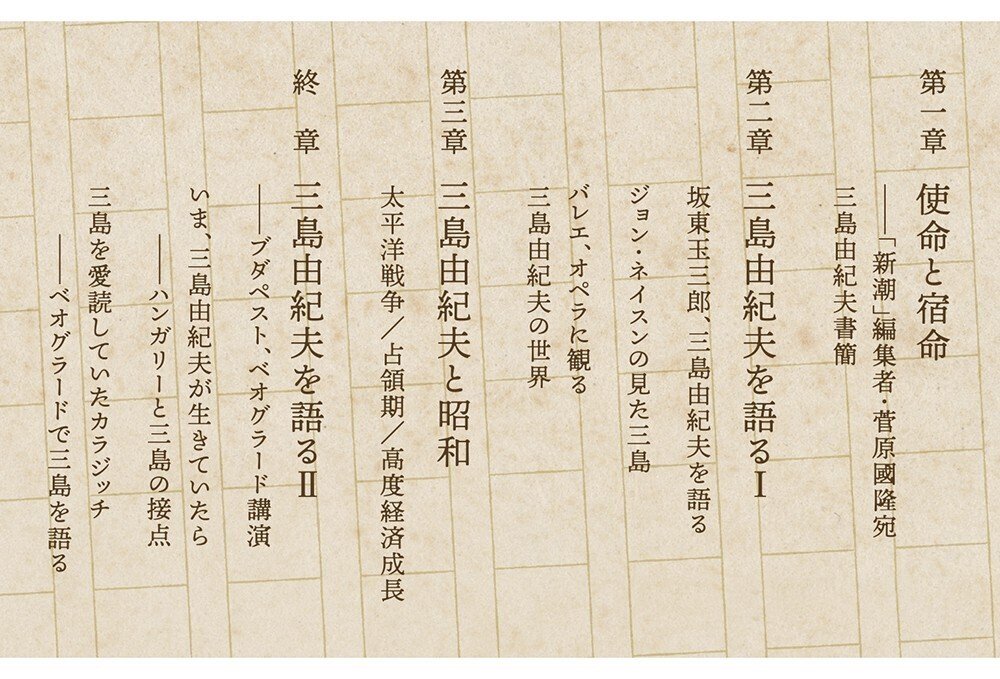 第一章 使命と宿命
――「新潮」編集者・菅原國隆宛
三島由紀夫書簡
第二章 三島由紀夫を語るⅠ
坂東玉三郎、三島由紀夫を語る
ジョン・ネイスンの見た三島
バレエ、オペラに観る
三島由紀夫の世界
第三章 三島由紀夫と昭和
太平洋戦争／占領期／高度経済成長
終 章 三島由紀夫を語るⅡ
――ブダペスト、ベオグラード講演
いま、三島由紀夫が生きていたら
――ハンガリーと三島の接点
三島を愛読していたカラジッチ
――ベオグラードで三島を語る